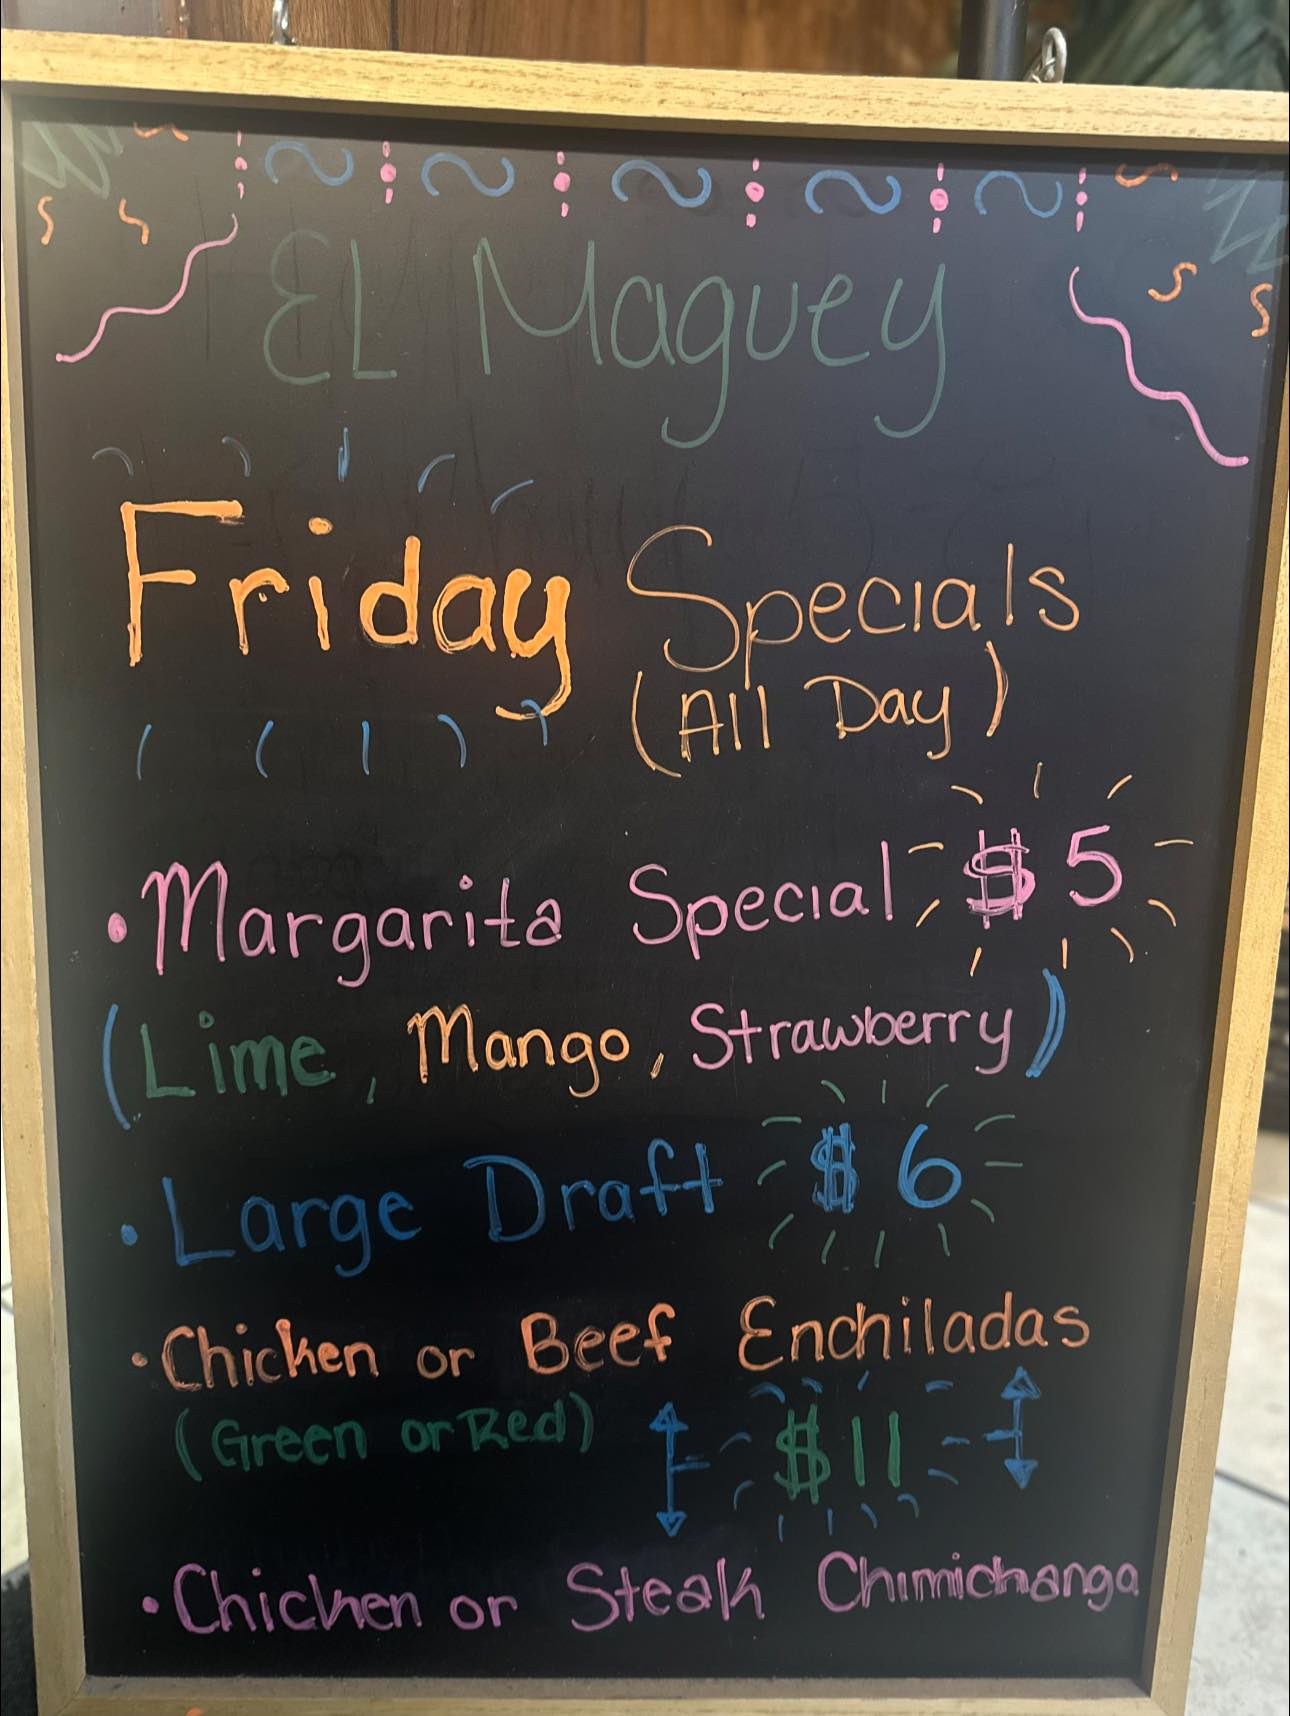 EL Maguey
Friday Specials
(All Day)
• Margarita Special $5
(Lime, Mango, Strawberry)
• Large Draft $6
• Chicken or Beef Enchiladas
(Green or Red) $11
• Chicken or Steak Chimichanga